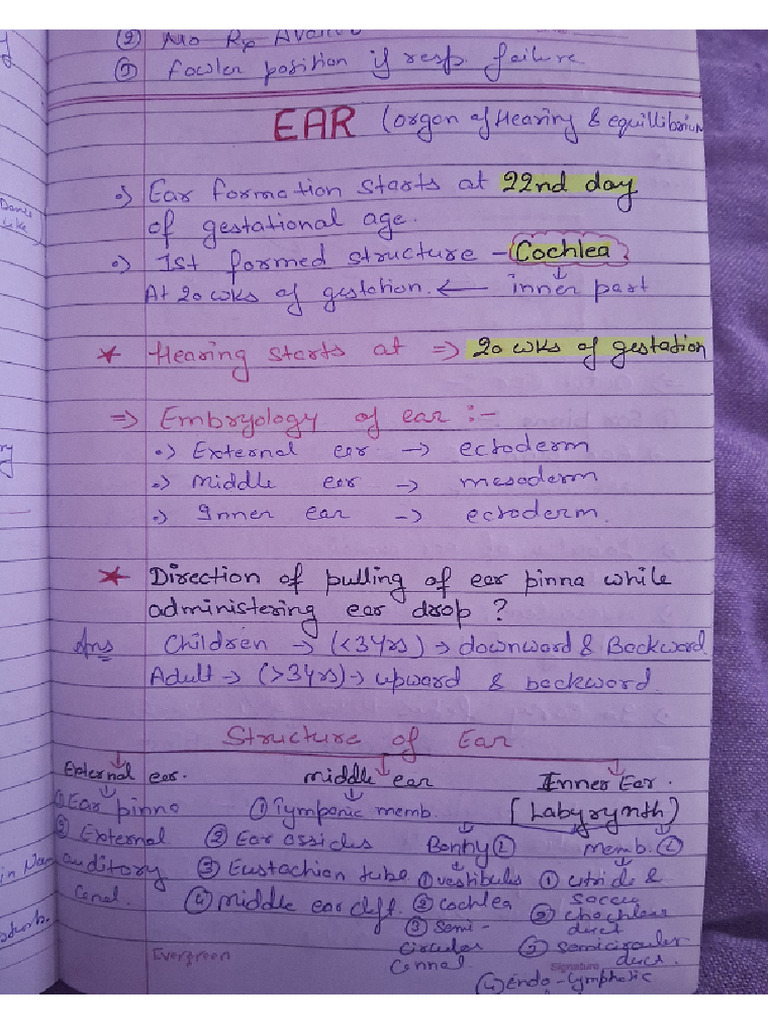 ② No Rx Availa
③ fowler position if resp. failure
EAR (organ of Hearing & equillibrium
•) Ear formation starts at 22nd day
of gestational age.
•) 1st formed structure - Cochlea
At 20 wks of gestation. ← inner part
* Hearing starts at ⇒ 20 wks of gestation
⇒ Embryology of ear :-
•) External ear → ectoderm
•) Middle ear → mesoderm
•) Inner ear → ectoderm.
* Direction of pulling of ear pinna while
administering ear drop ?
Ans Children → (<3yrs) → downward & Backward
Adult → (>3yrs) → upward & backward.
Structure of Ear
External ear. middle ear Inner Ear.
① Ear pinna ① Tympanic memb. (Labyrynth)
② External ② Ear ossicles Bonny ① Memb. ②
auditory ③ Eustachian tube ① vestibules ① utricle &
Canal. ④ middle ear cleft ② cochlea saccu
③ Semi- ② chochlear
circular duct
Cannal. ③ semicircular
ducs.
④ endo-lymphatic
Evergreen
Signature